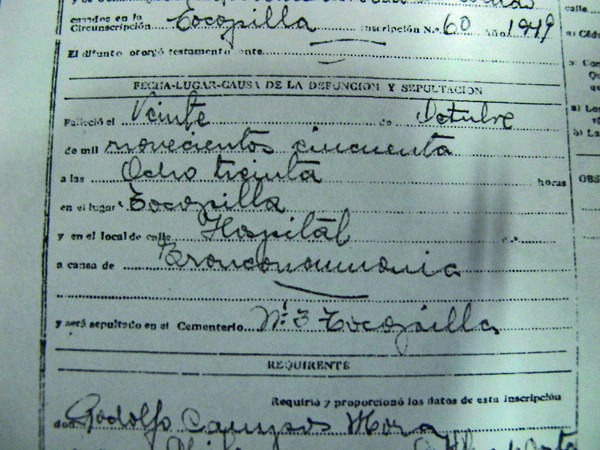 casados en la
Circunscripción Tocopilla Inscripción N.º 60 Año 1949
El difunto otorgó testamento ante
FECHA-LUGAR-CAUSA DE LA DEFUNCION Y SEPULTACION
Falleció el Veinte de Octubre
de mil novecientos cincuenta
a las Ocho treinta horas
en el lugar Tocopilla
y en el local de calle Hospital
a causa de Bronconeumonia
y será sepultado en el Cementerio Nº 3 Tocopilla
REQUIRENTE
Requirió y proporcionó los datos de esta inscripción
don Rodolfo Campos Mora
calle
OBS